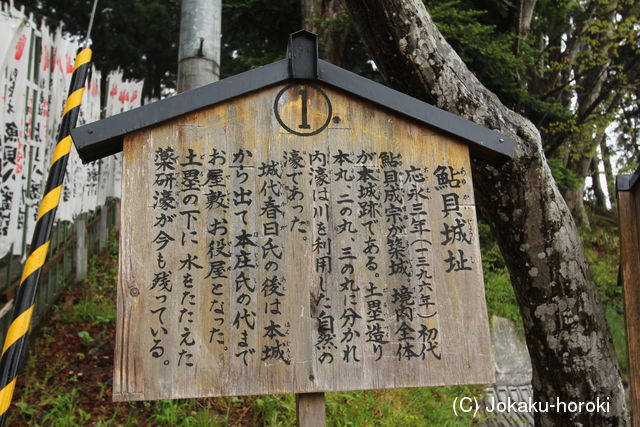 ①
鮎貝城址
応永三年（一三九六年）初代
鮎貝成宗が築城、境内全体
が本城跡である。土塁造り
本丸、二の丸、三の丸に分かれ
内濠は川を利用した自然の
濠であった。
城代春日氏の後は本城
から出て本庄氏の代まで
お屋敷、お役屋となった。
土塁の下に水をたたえた
薬研濠が今も残っている。
(C) Jokaku-horoki